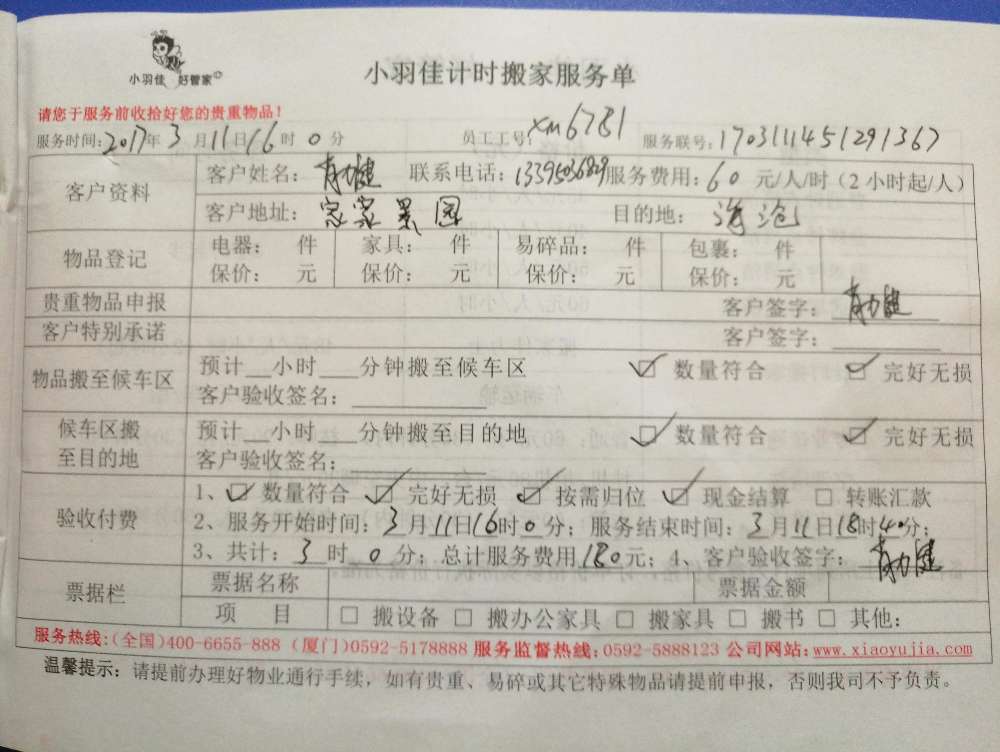 小羽佳 好管家
小羽佳计时搬家服务单
请您于服务前收拾好您的贵重物品!
服务时间:2017年3月11日16时0分 员工工号:xm6781 服务联号:1703111451291367
客户资料 客户姓名: 联系电话:13395036829 服务费用:60元/人/时(2小时起/人)
客户地址: 景园 目的地:海沧
物品登记 电器: 件 家具: 件 易碎品: 件 包裹: 件
保价: 元 保价: 元 保价: 元 保价: 元
贵重物品申报 客户签字:
客户特别承诺 客户签字:
物品搬至候车区 预计__小时___分钟搬至候车区 ☑ 数量符合 ☑ 完好无损
客户验收签名:
候车区搬至目的地 预计__小时___分钟搬至目的地 ☑ 数量符合 ☑ 完好无损
客户验收签名:
验收付费 1、☑ 数量符合 ☑ 完好无损 ☑ 按需归位 ☑ 现金结算 □ 转账汇款
2、服务开始时间:3月11日16时0分;服务结束时间:3月11日18时40分;
3、共计:3时0分;总计服务费用180元;4、客户验收签字:
票据栏 票据名称 票据金额
项 目 □ 搬设备 □ 搬办公家具 □ 搬家具 □ 搬书 □ 其他:
服务热线:(全国)400-6655-888 (厦门)0592-5178888 服务监督热线:0592-5888123 公司网站:www.xiaoyujia.com
温馨提示:请提前办理好物业通行手续,如有贵重、易碎或其它特殊物品请提前申报,否则我司不予负责。